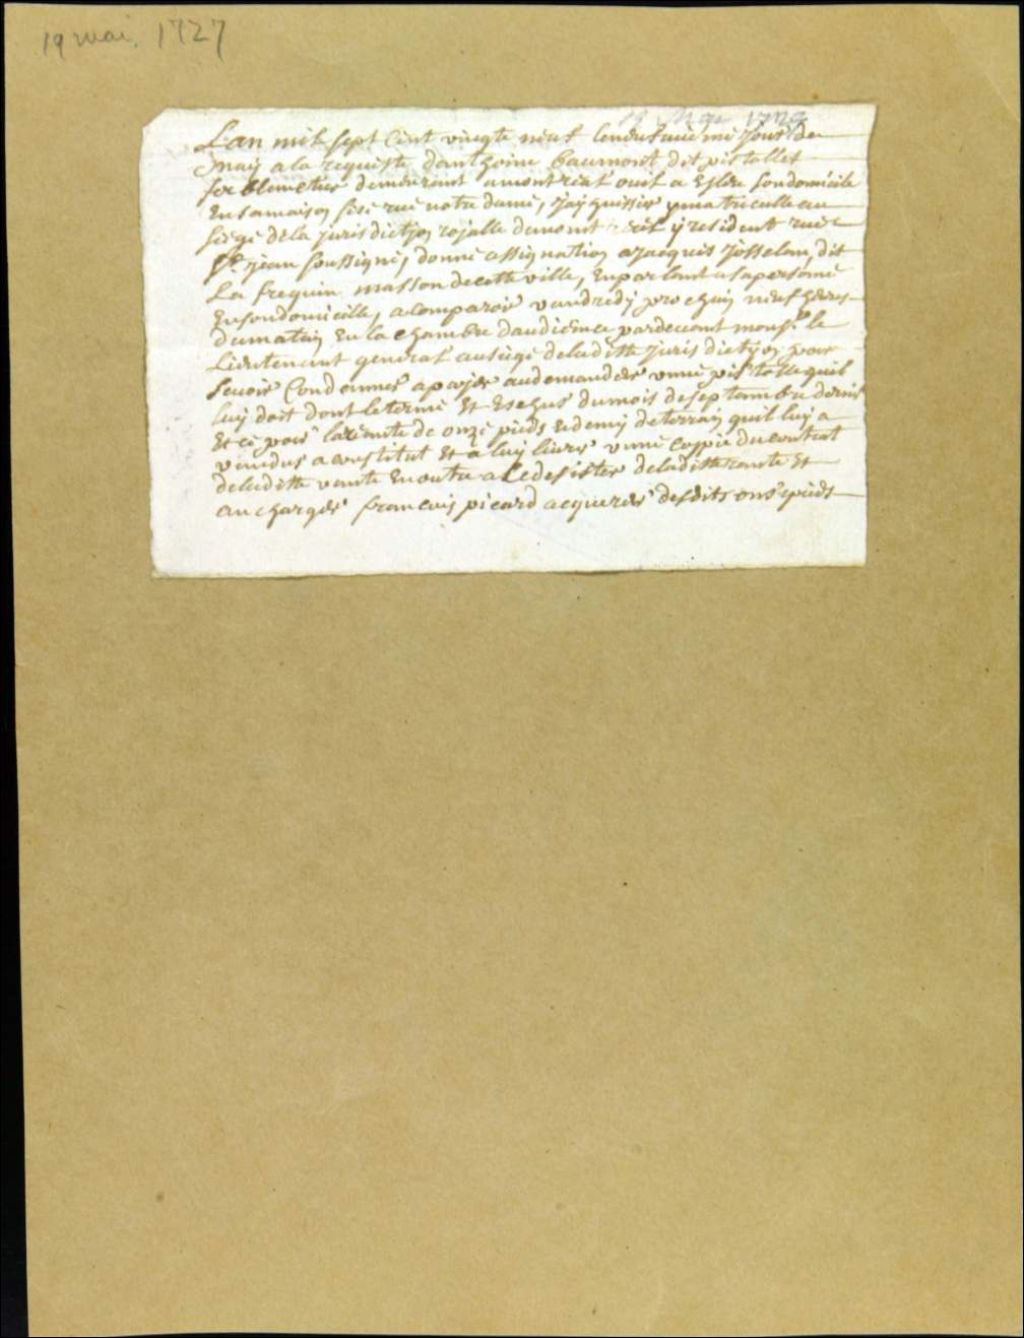 19 mai. 1727
19 May 1729
L'an mil sept cent vingte neuf le dixneuvieme jour de
may a la requeste danthoine baumont dit pistollet
ferblentier demeurant a montreal ouil a Eslëu son domicile
En sa maison sise rue notre dame, J'ay huissier ymatriculle au
siege de la jurisdiction rojalle de mont réal y resident rue
St. jean soussigné, donné assignation a Jacques Josselam dit
La frequin masson de cette ville, En parlant a sa personne
En son domicille, a comparoir vandredy prochain neuf heures
du matin En la chambre daudience pardevant monsr. le
Lieutenant general au siege de laditte jurisdiction pour
se voir Condamner a payer au demander unne pistolle quil
luy doit dont le terme Et Eschus du mois de septambre dernier
Et ce pour la vante de onze pieds Edemy de terrain quil luy a
vendus a constitut Et a luy livrer unne coppie du contrat
de laditte vante En outre a Ce desister de laditte vante Et
an charger francois picard acquerer desdits onse pieds